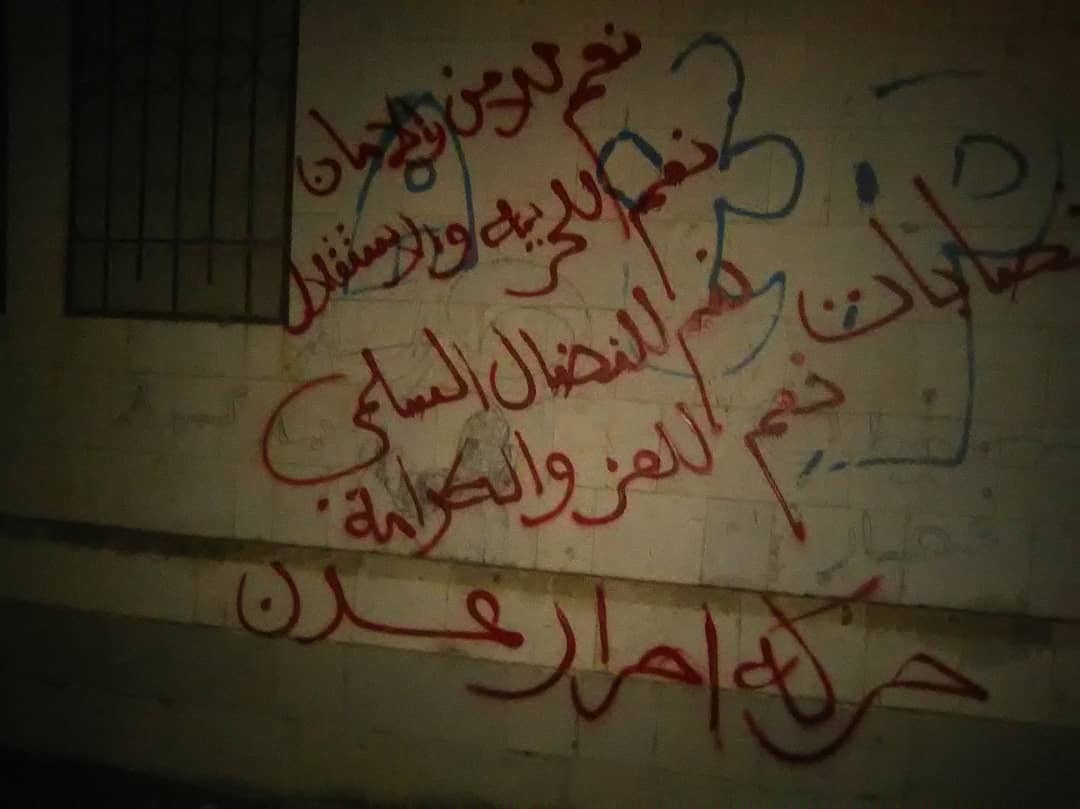 نعم للامن والامان
نعم للحريه والاستقلال
نعم للنضال السلمي
نعم للعز والكرامة
حركه احرار عدن